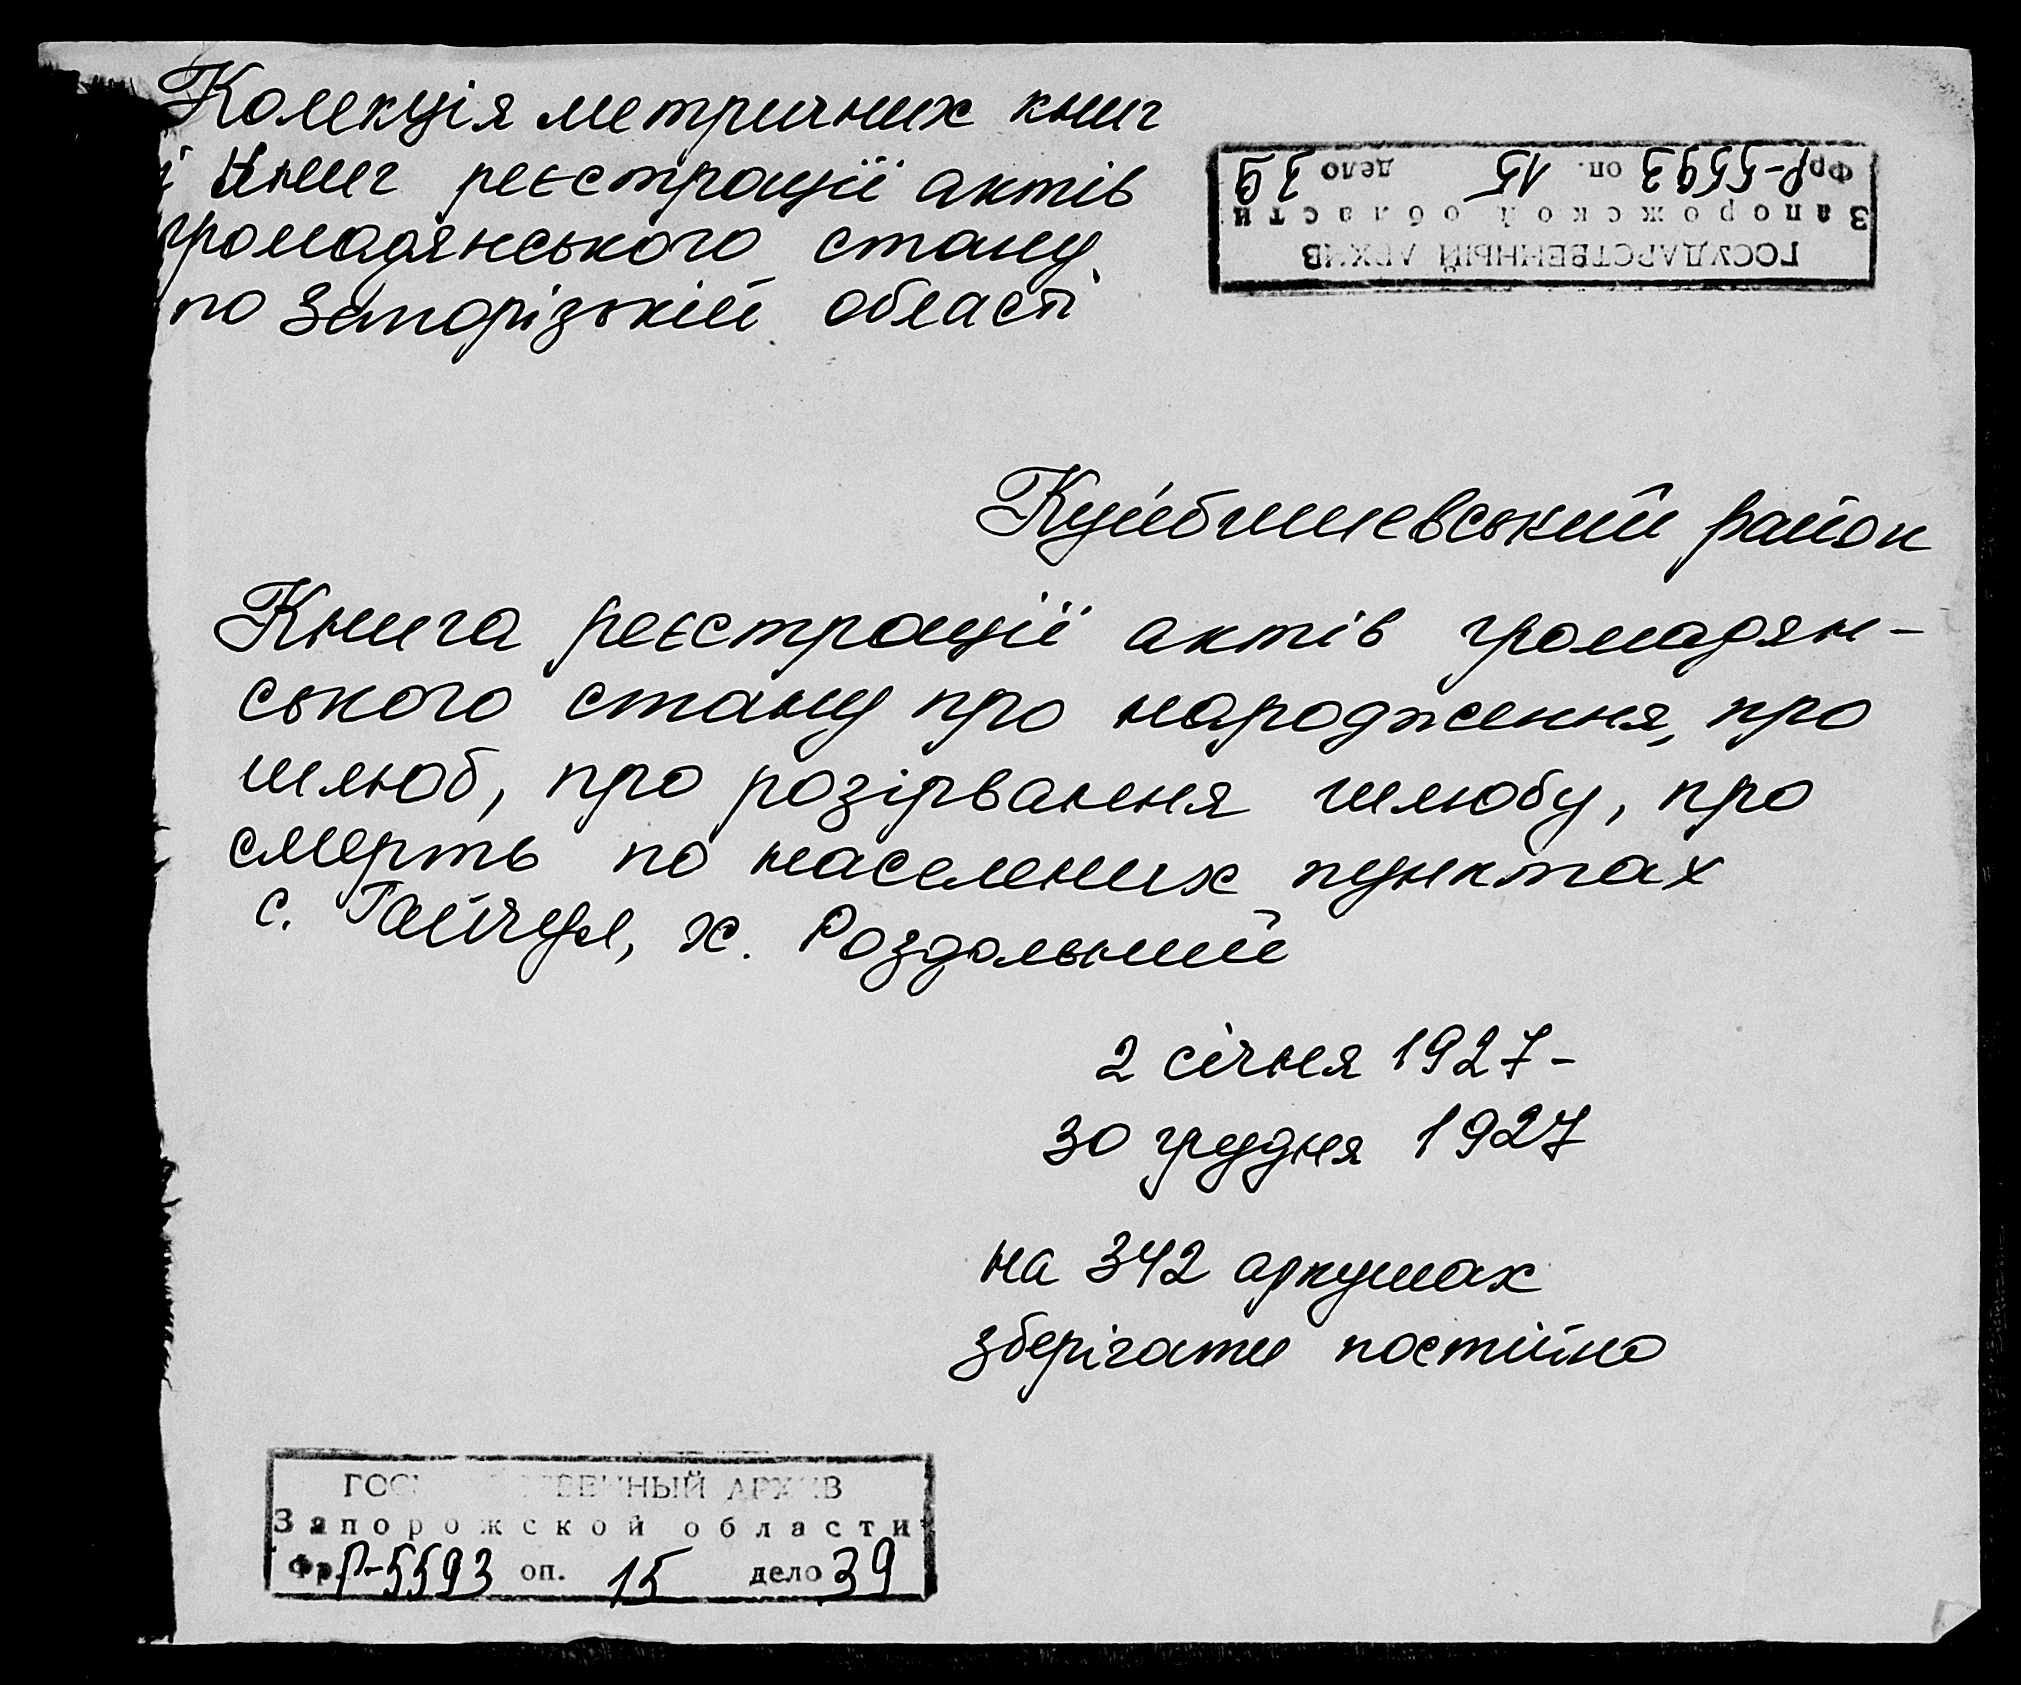 Колекція метричних книг
і книг реєстрації актів
громадянського стану
по Запорізькій області
ГОСУДАРСТВЕННЫЙ АРХИВ
Запорожской области
Фр Р-5593 оп. 15 дело 39
Куйбишевський район
Книга реєстрації актів громадян-
ського стану про народження, про
шлюб, про розірвання шлюбу, про
смерть по населених пунктах
с. Гайчул, х. Роздольний
2 січня 1927-
30 грудня 1927
на 342 аркушах
зберігати постійно
ГОСУДАРСТВЕННЫЙ АРХИВ
Запорожской области
Фр. Р-5593 оп. 15 дело 39